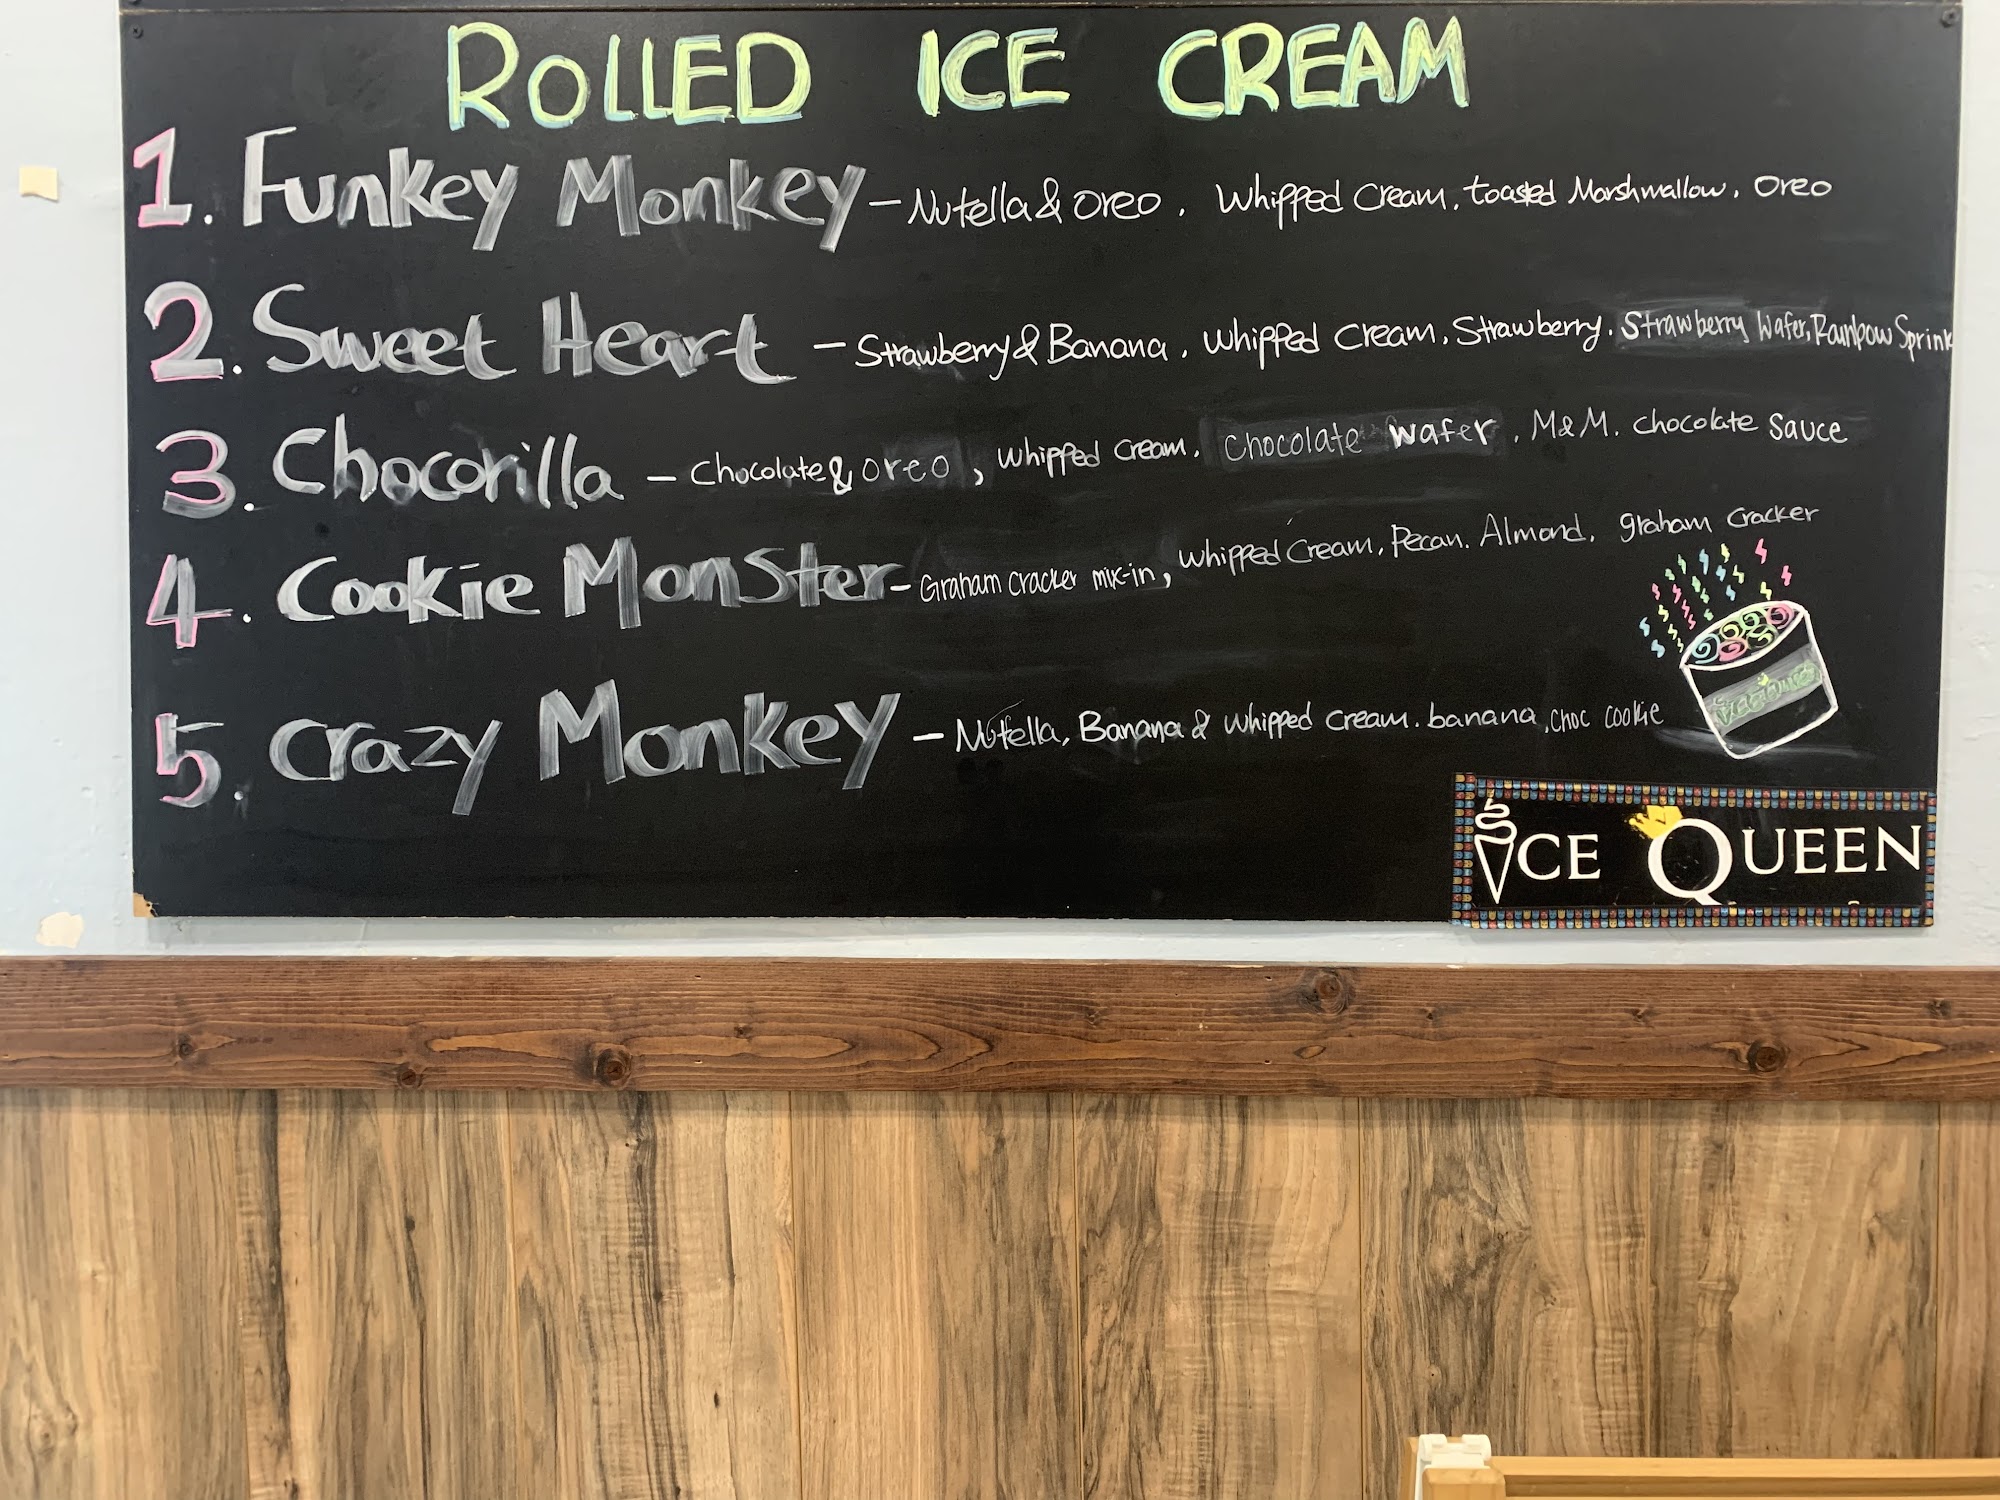 ROLLED ICE CREAM
1. Funkey Monkey - Nutella & oreo, Whipped Cream, toasted Marshmallow, Oreo
2. Sweet Heart - Strawberry & Banana, Whipped Cream, Strawberry, Strawberry Wafer, Rainbow Sprink
3. Chocorilla - Chocolate & oreo, Whipped Cream, Chocolate Wafer, M&M. chocolate Sauce
4. Cookie Monster - Graham Cracker mix-in, Whipped Cream, Pecan. Almond, graham cracker
5. Crazy Monkey - Nutella, Banana & whipped cream. banana, choc cookie
ICE QUEEN